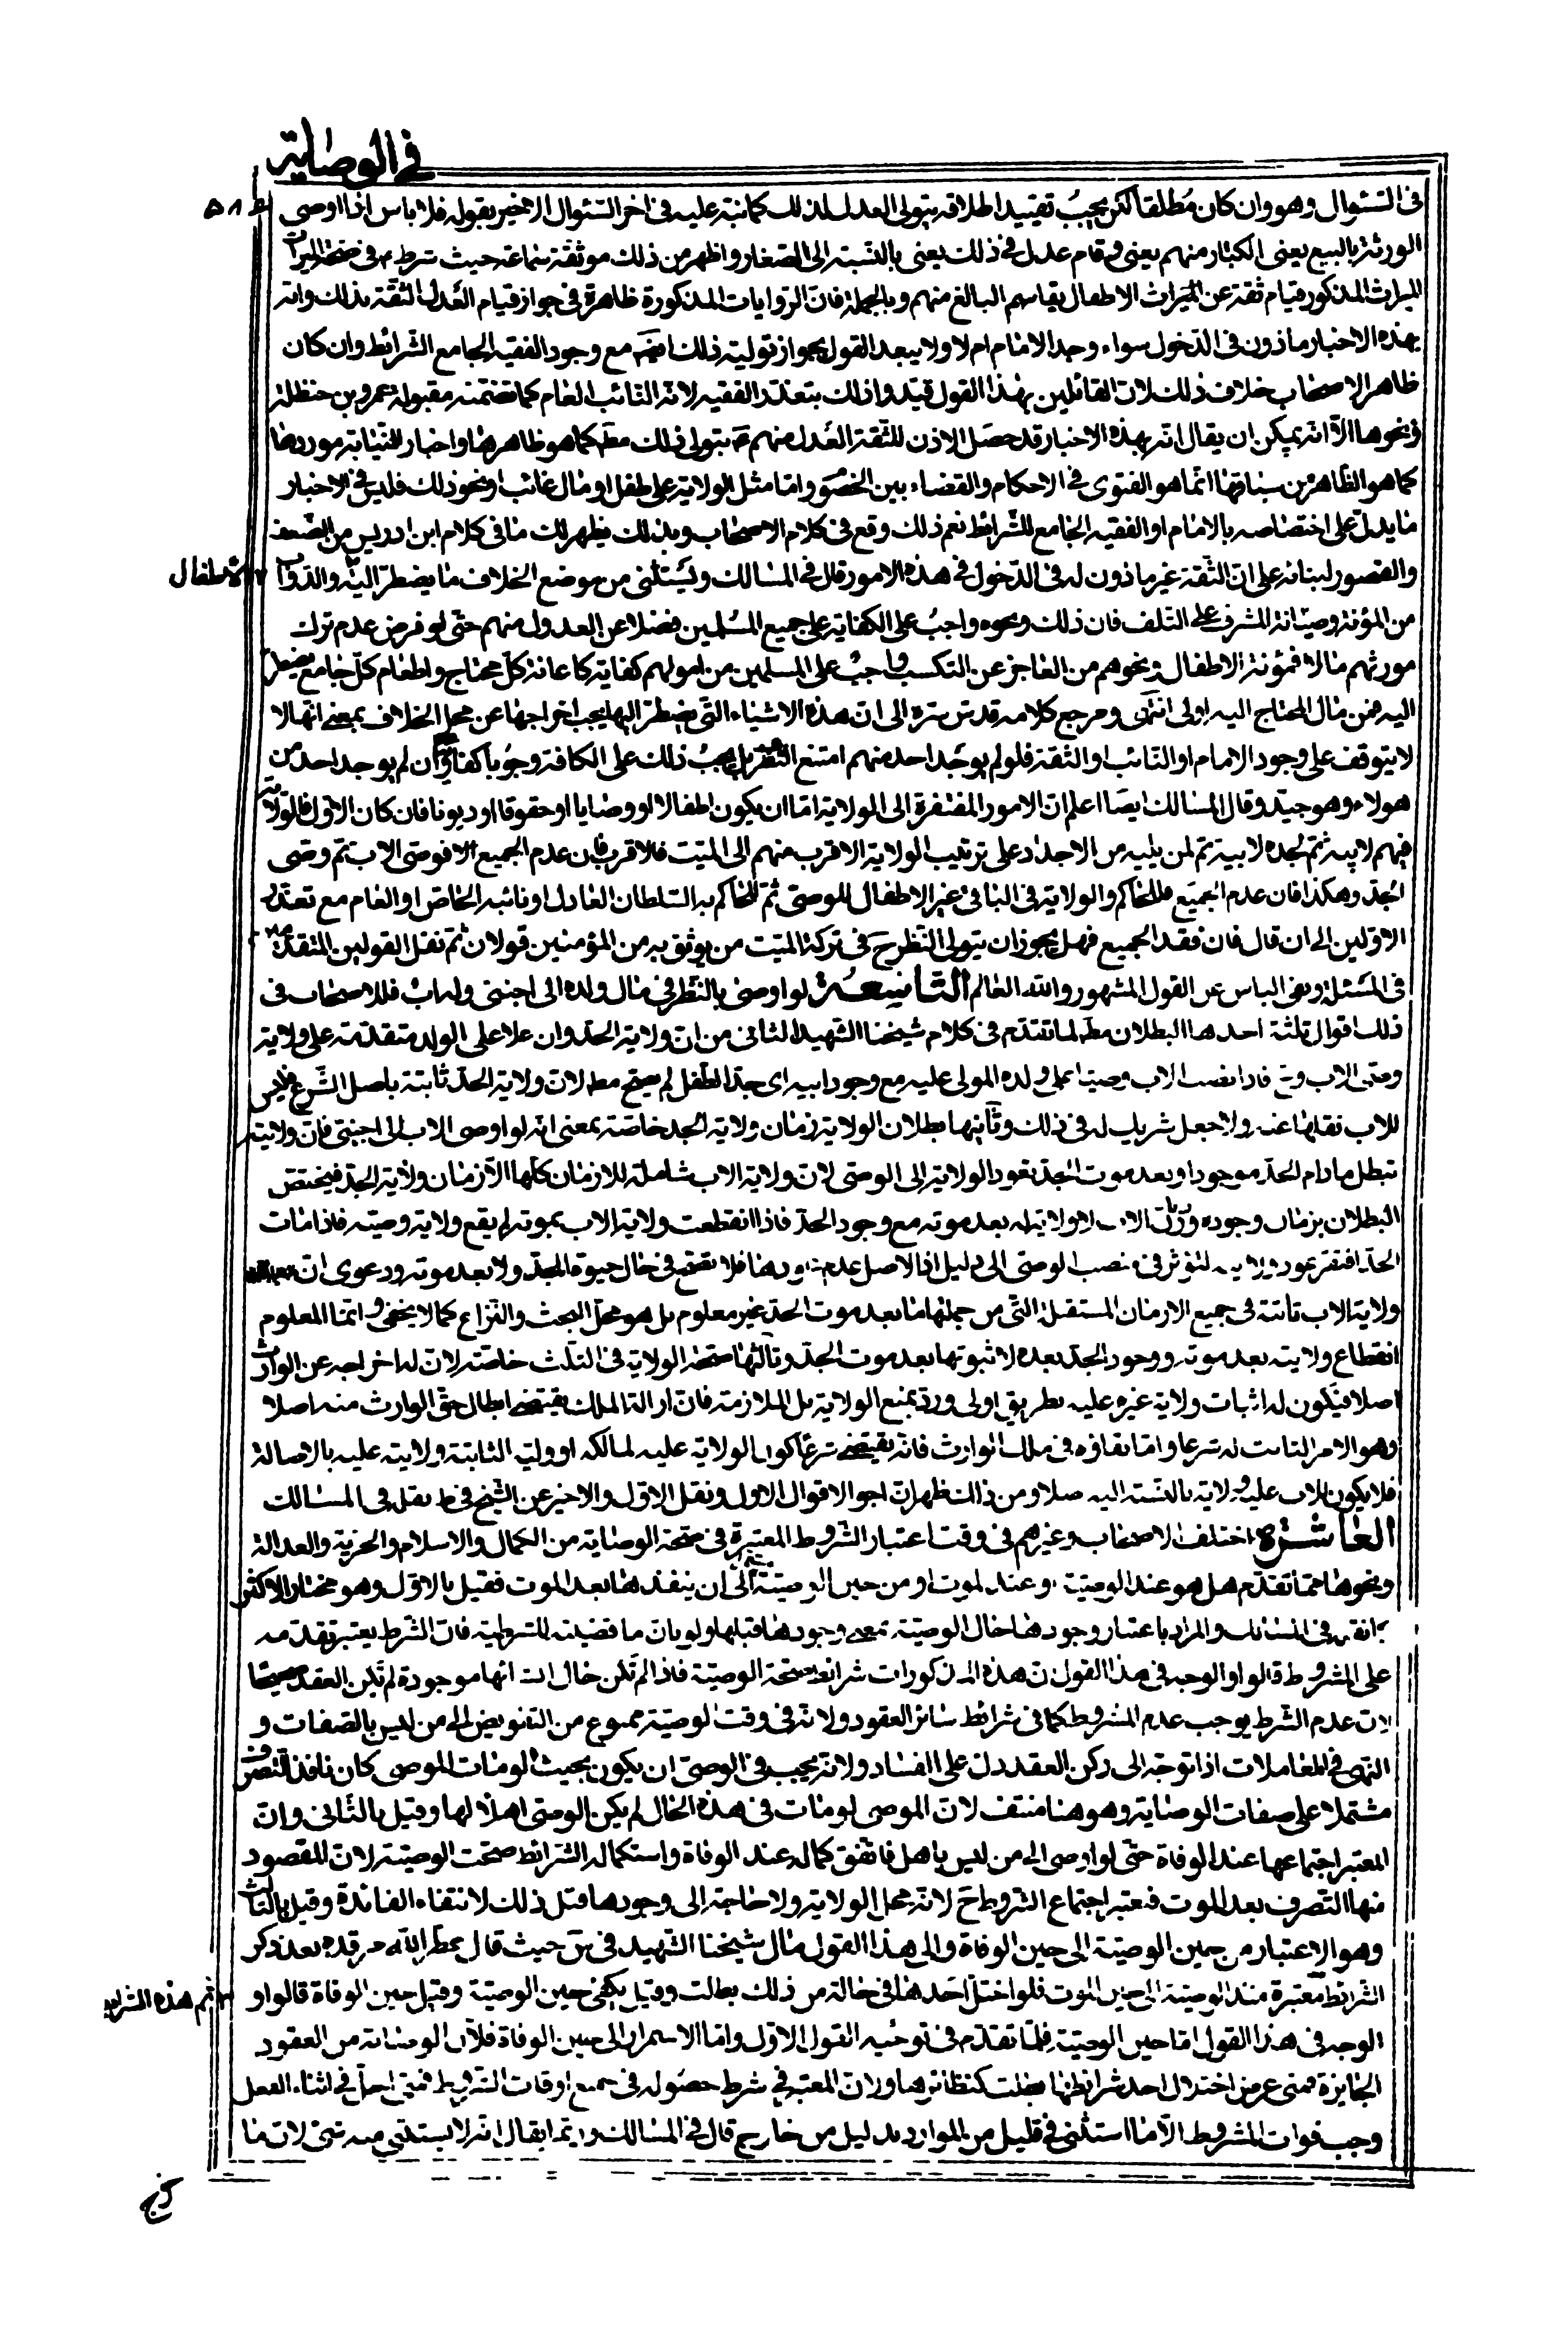 في الوصاية
في السئوال وهو وان كان مطلقا لكن يجب تقييد اطلاقه بتولى العدل لذلك كما نبه عليه في اخر السئوال الاخير بقوله فلا باس اذا اوصى
الورثة بالبيع يعنى الكبار منهم يعنى وقام عدل في ذلك يعنى بالنسبة الى الصغار واظهر من ذلك موثقة سماعة حيث شرط في صحة
الميراث المذكور قيام ثقة عن الميراث الاطفال يقاسم البالغ منهم وبالجملة فان الروايات المذكورة ظاهرة في جواز قيام العدل الثقة بذلك وانه
بهذه الاخبار ماذون في الدخول سواء وجد الامام ام لا ولا يبعد القول بجواز تولية ذلك ايضا مع وجود الفقيه الجامع الشرائط وان كان
ظاهر الاصحاب خلاف ذلك لان القائلين بهذا القول قيدوا ذلك بتعذر الفقيه لانه النائب العام كما تضمنته مقبولة عمرو بن حنظلة
ونحوها الا انه يمكن ان يقال انه بهذه الاخبار قد حصل الاذن للثقة العدل منهم بتولى ذلك مطم كما هو ظاهرها واخبار النيابة موردها
كما هو الظاهر من سياقها انما هو الفتوى في الاحكام والقضاء بين الخصوم واما مثل الولاية على طفل او مال غائب او نحو ذلك فليس في الاخبار
ما يدل على اختصاصه بالامام او الفقيه الجامع للشرائط نعم ذلك وقع في كلام الاصحاب وبذلك يظهر لك ما في كلام ابن ادريس من الضعف
والقصور لبنائه على ان الثقة غير ماذون له في الدخول في هذه الامور قال في المسالك ويستثنى من موضع الخلاف ما يضطر اليه والدواب
الاطفال
من المؤنة وصيانة المشرف على التلف فان ذلك ونحوه واجب على الكفاية على جميع المسلمين فضلا عن العدول منهم حتى لو فرض عدم ترك
مورثهم مالا فمؤنة الاطفال ونحوهم من العاجز عن التكسب واجب على المسلمين من اموالهم كفاية كاعانة كل محتاج واطعام كل جامع يضطر
اليه فمن مال المحتاج اليه اولى انتهى ومرجع كلامه قدس سره الى ان هذه الاشياء التي يضطر اليها يجب اخراجها عن محل الخلاف بمعنى انها لا
لا يتوقف على وجود الامام او النائب او الثقة فلو لم يوجد احد منهم امتنع النظر بل يجب ذلك على الكافة وجوبا كفائيا وان لم يوجد احد من
هولاء وهو جيد وقال المسالك ايضا اعلم ان الامور المفتقرة الى الولاية اما ان يكون اطفالا او وصايا او حقوقا او ديونا فان كان الاول فالولاية
فيهم لابيه ثم لجده لابيه ثم لمن يليه من الاجداد على ترتيب الولاية الاقرب منهم الى الميت فالاقرب فان عدم الجميع فوصى الاب ثم وصى
الجد وهكذا فان عدم الجميع فللحاكم والولاية في الباقي غير الاطفال للوصى ثم للحاكم به السلطان العادل او نائبه الخاص او العام مع تعذر
الاولين الى ان قال فان فقد الجميع فهل يجوز ان يتولى النظر ح في تركة الميت من يوثق به من المؤمنين قولان ثم نقل القولين المتقدمين
في المسئلة ونفى الباس عن القول المشهور والله العالم التاسعة لو اوصى بالنظر في مال ولده الى اجنبى وله اب فللاصحاب في
ذلك اقوال ثلثة احدها البطلان مطم لما تقدم في كلام شيخنا الشهيد الثاني من ان ولاية الجد وان علا على الولد متقدمة على ولاية
وصى الاب وح فاذا نصب الاب وصيا على ولده المولى عليه مع وجود ابيه اى جد الطفل لم يصح مطم لان ولاية الجد ثابتة باصل الشرع فليس
للاب نقلها عنه ولا جعل شريك له في ذلك وثانيها بطلان الولاية زمان ولاية الجد خاصة بمعنى انه لو اوصى الاب الى اجنبى فان ولايته
تبطل مادام الجد موجودا وبعد موت الجد تعود الولاية الى الوصى لان ولاية الاب شاملة للازمان كلها الا زمان ولاية الجد فيختص
البطلان بزمان وجوده ورد بان الاب لا ولاية له بعد موته مع وجود الجد فاذا انقطعت ولاية الاب بموته لم يقع ولاية وصيه فاذا مات
الجد افتقر عود ولايته لتؤثر في نصب الوصى الى دليل اذ الاصل عدم عودها فلا تصح في حال حيوة الجد ولا بعد موته ودعوى ان
ولاية الاب ثابتة في جميع الازمان المستقبلة التي من جملتها ما بعد موت الجد غير معلوم بل هو محل البحث والنزاع كما لا يخفى وانما المعلوم
انقطاع ولايته بعد موته ووجود الجد بعده لا ثبوتها بعد موت الجد وثالثها صحة الولاية في الثلث خاصة لان له اخراجه عن الوارث
اصلا فيكون له اثبات ولاية غيره عليه بطريق اولى ورد بمنع الولاية بل الملازمة فان ازالة الملك يقتضى ابطال حق الوارث منه اصلا
وهو الامر الثابت له شرعا واما بقاؤه في ملك الوارث فانه يقتضى شرعا كون الولاية عليه لمالكه او وليه الثابتة ولايته عليه بالاصالة
فلا يكون للاب عليه ولاية بالنسبة اليه اصلا ومن ذلك ظهر ان اجود الاقوال الاول ونقل الاول والاخير عن الشيخ في ط نقل في المسالك
العاشرة اختلف الاصحاب وغيرهم في وقت اعتبار الشروط المعتبرة في صحة الوصاية من الكمال والاسلام والحرية والعدالة
ونحوها مما تقدم هل هو عند الوصية او عند الموت او من حين الوصية الى ان ينفذها بعد الموت فقيل بالاول وهو مختار الاكثر
كما نقله في المسالك والمراد باعتبار وجودها حال الوصية بمعنى وجودها قبلها ولو بان ما قضية للشرطية فان الشرط يعتبر تقدمه
على المشروط قالوا والوجه في هذا القول ان هذه المذكورات شرائط صحة الوصية فاذا لم تكن حال انشائها موجودة لم تكن العقد صحيحا
لان عدم الشرط يوجب عدم المشروط كما في شرائط سائر العقود ولانه في وقت الوصية ممنوع من التفويض الى من ليس بالصفات و
النهى في المعاملات اذا توجه الى ركن العقد دل على الفساد ولانه يجب في الوصى ان يكون بحيث لو مات الموصى كان نافذ التصرف
مشتملا على صفات الوصاية وهو هنا منتف لان الموصى لو مات في هذه الحال لم يكن الوصى اهلا لها وقيل بالثاني وان
المعتبر اجتماعها عند الوفاة حتى لو اوصى الى من ليس باهل فاتفق كماله عند الوفاة واستكماله الشرائط صحت الوصية لان المقصود
منها التصرف بعد الموت فيعتبر اجتماع الشروط ح لانه محل الولاية ولا حاجة الى وجودها قبل ذلك لانتفاء الفائدة وقيل بالثالث
وهو الاعتبار من حين الوصية الى حين الوفاة والى هذا القول مال شيخنا الشهيد في س حيث قال عطر الله مرقده بعد ذكر
الشرائط معتبرة منذ الوصية الى حين الموت فلو اختل احدها في حالة من ذلك بطلت وقيل يكفى حين الوصية وقيل حين الوفاة قالوا و
ثم هذه الشرائط
الوجه في هذا القول اما حين الوصية فلما تقدم في توجيه القول الاول واما الاستمرار الى حين الوفاة فلان الوصاية من العقود
الجايزة فمتى عرض اختلال احد شرائطها بطلت كنظائرها ولان المعتبر في شرط حصوله في جميع اوقات الشروط فمتى اخل في اثناء الفعل
وجب فوات المشروط الا ما استثنى في قليل من الموارد بدليل من خارج قال في المسالك وانما يقال انه لا يستثنى منه شئ لان ما